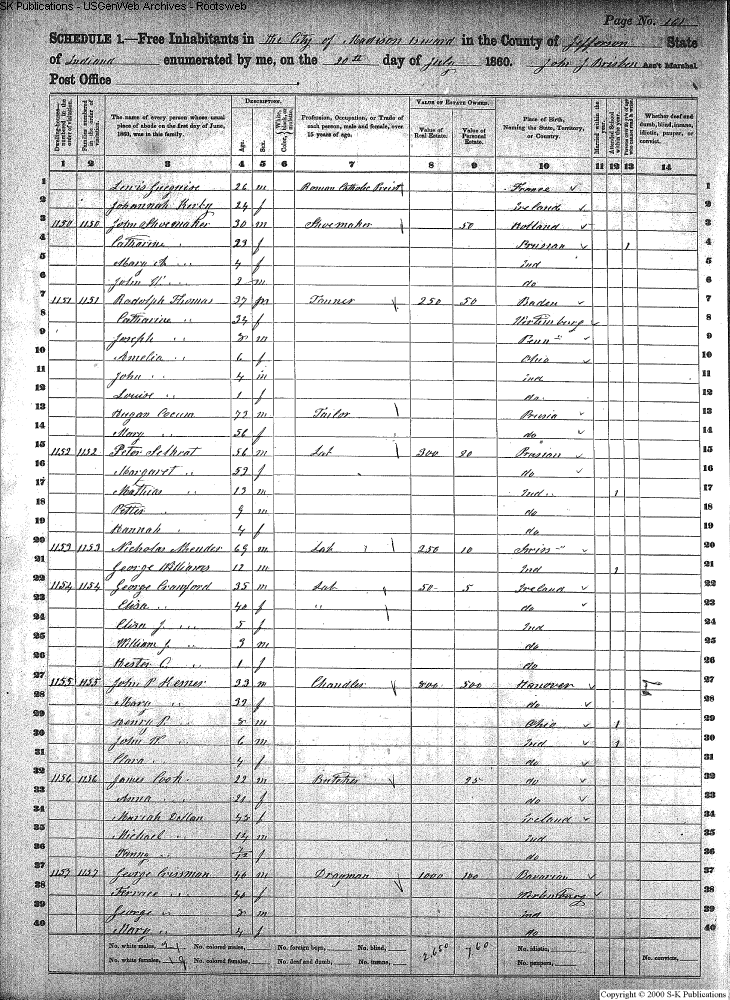 SK Publications - USGenWeb Archives - Rootsweb
Page No. 101
SCHEDULE 1.—Free Inhabitants in The City of Madison in the County of Jefferson State
of Indiana enumerated by me, on the 20th day of July 1860. John J Ass't Marshal.
Post Office
Dwelling-houses—numbered in the order of visitation.
Families numbered in the order of visitation.
The name of every person whose usual place of abode on the first day of June, 1860, was in this family.
DESCRIPTION.
Age.
Sex.
Color, White, black, or mulatto.
Profession, Occupation, or Trade of each person, male and female, over 15 years of age.
VALUE OF ESTATE OWNED.
Value of Real Estate.
Value of Personal Estate.
Place of Birth, Naming the State, Territory, or Country.
Married within the year.
Attended School within the year.
Whether deaf and dumb, blind, insane, idiotic, pauper, or convict.
1 2 3 4 5 6 7 8 9 10 11 12 13 14
1 Lewis 26 m Roman Catholic Priest France 1
2 Johannah Kerby 24 f Ireland 2
3 1150 1150 John Shoemaker 30 m Shoemaker 50 Holland 3
4 Catherine 23 f Prussian 1 4
5 Mary A 4 f Ind 5
6 John H 2 m do 6
7 1151 1151 Radolph Thomas 37 m Tanner 250 50 Baden 7
8 Catharine " 34 f Wirtemburg 8
9 Joseph " 8 m Penn 9
10 Amelia " 6 f Ohio 10
11 John " 4 m ind 11
12 Louise " 1 f do 12
13 Hugan 73 m Tailor Prusia 13
14 Mary 56 f do 14
15 1152 1152 Peter 56 m Lab 300 20 Prusian 15
16 Margaret " 53 f do 16
17 Mathias " 13 m Ind 1 17
18 Petter " 9 m do 18
19 Hannah 4 f do 19
20 1153 1153 Nicholas 69 m Lab 250 10 Swiss 20
21 George Williams 12 m Ind 1 21
22 1154 1154 George Crawford 35 m Lab 50 5 Ireland 22
23 Eliza " 40 f " do 23
24 Eliza J " 5 f Ind 24
25 William J " 3 m do 25
26 Hester C " 1 f do 26
27 1155 1155 John P Hemer 33 m Chandler 800 500 Hanover 27
28 Mary " 32 f do 28
29 Henry P " 8 m Ohio 1 29
30 John W " 6 m Ind 1 30
31 Clara " 4 f do 31
32 1156 1156 James Cook 22 m Butcher 25 do 32
33 Anna " 21 f do 33
34 Mariah Dollan 45 f Ireland 34
35 Michael " 14 m Ind 35
36 Fanny " f do 36
37 1157 1157 George Crissman 40 m Drayman 1000 100 Bavarian 37
38 " 40 f Wirtemburg 38
39 George " 8 m Ind 39
40 Mary " 4 f do 40
No. white males, 21 No. colored males, No. foreign born, No. blind, 2,650 760 No. idiotic,
No. white females, 19 No. colored females, No. deaf and dumb, No. insane, No. paupers, No. convicts,
Copyright © 2000 S-K Publications